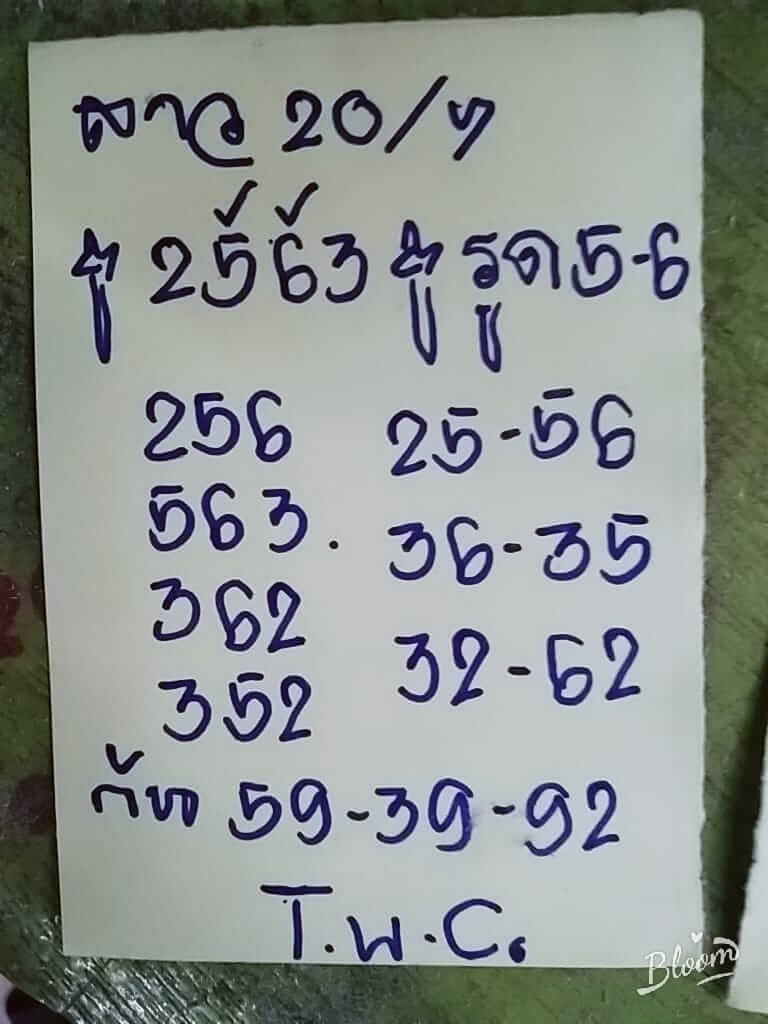 ลาว 20/7
2563 รูด 5-6
256 25-56
563. 36-35
362 32-62
352
กัน 59-39-92
T.W.C.
Bloom